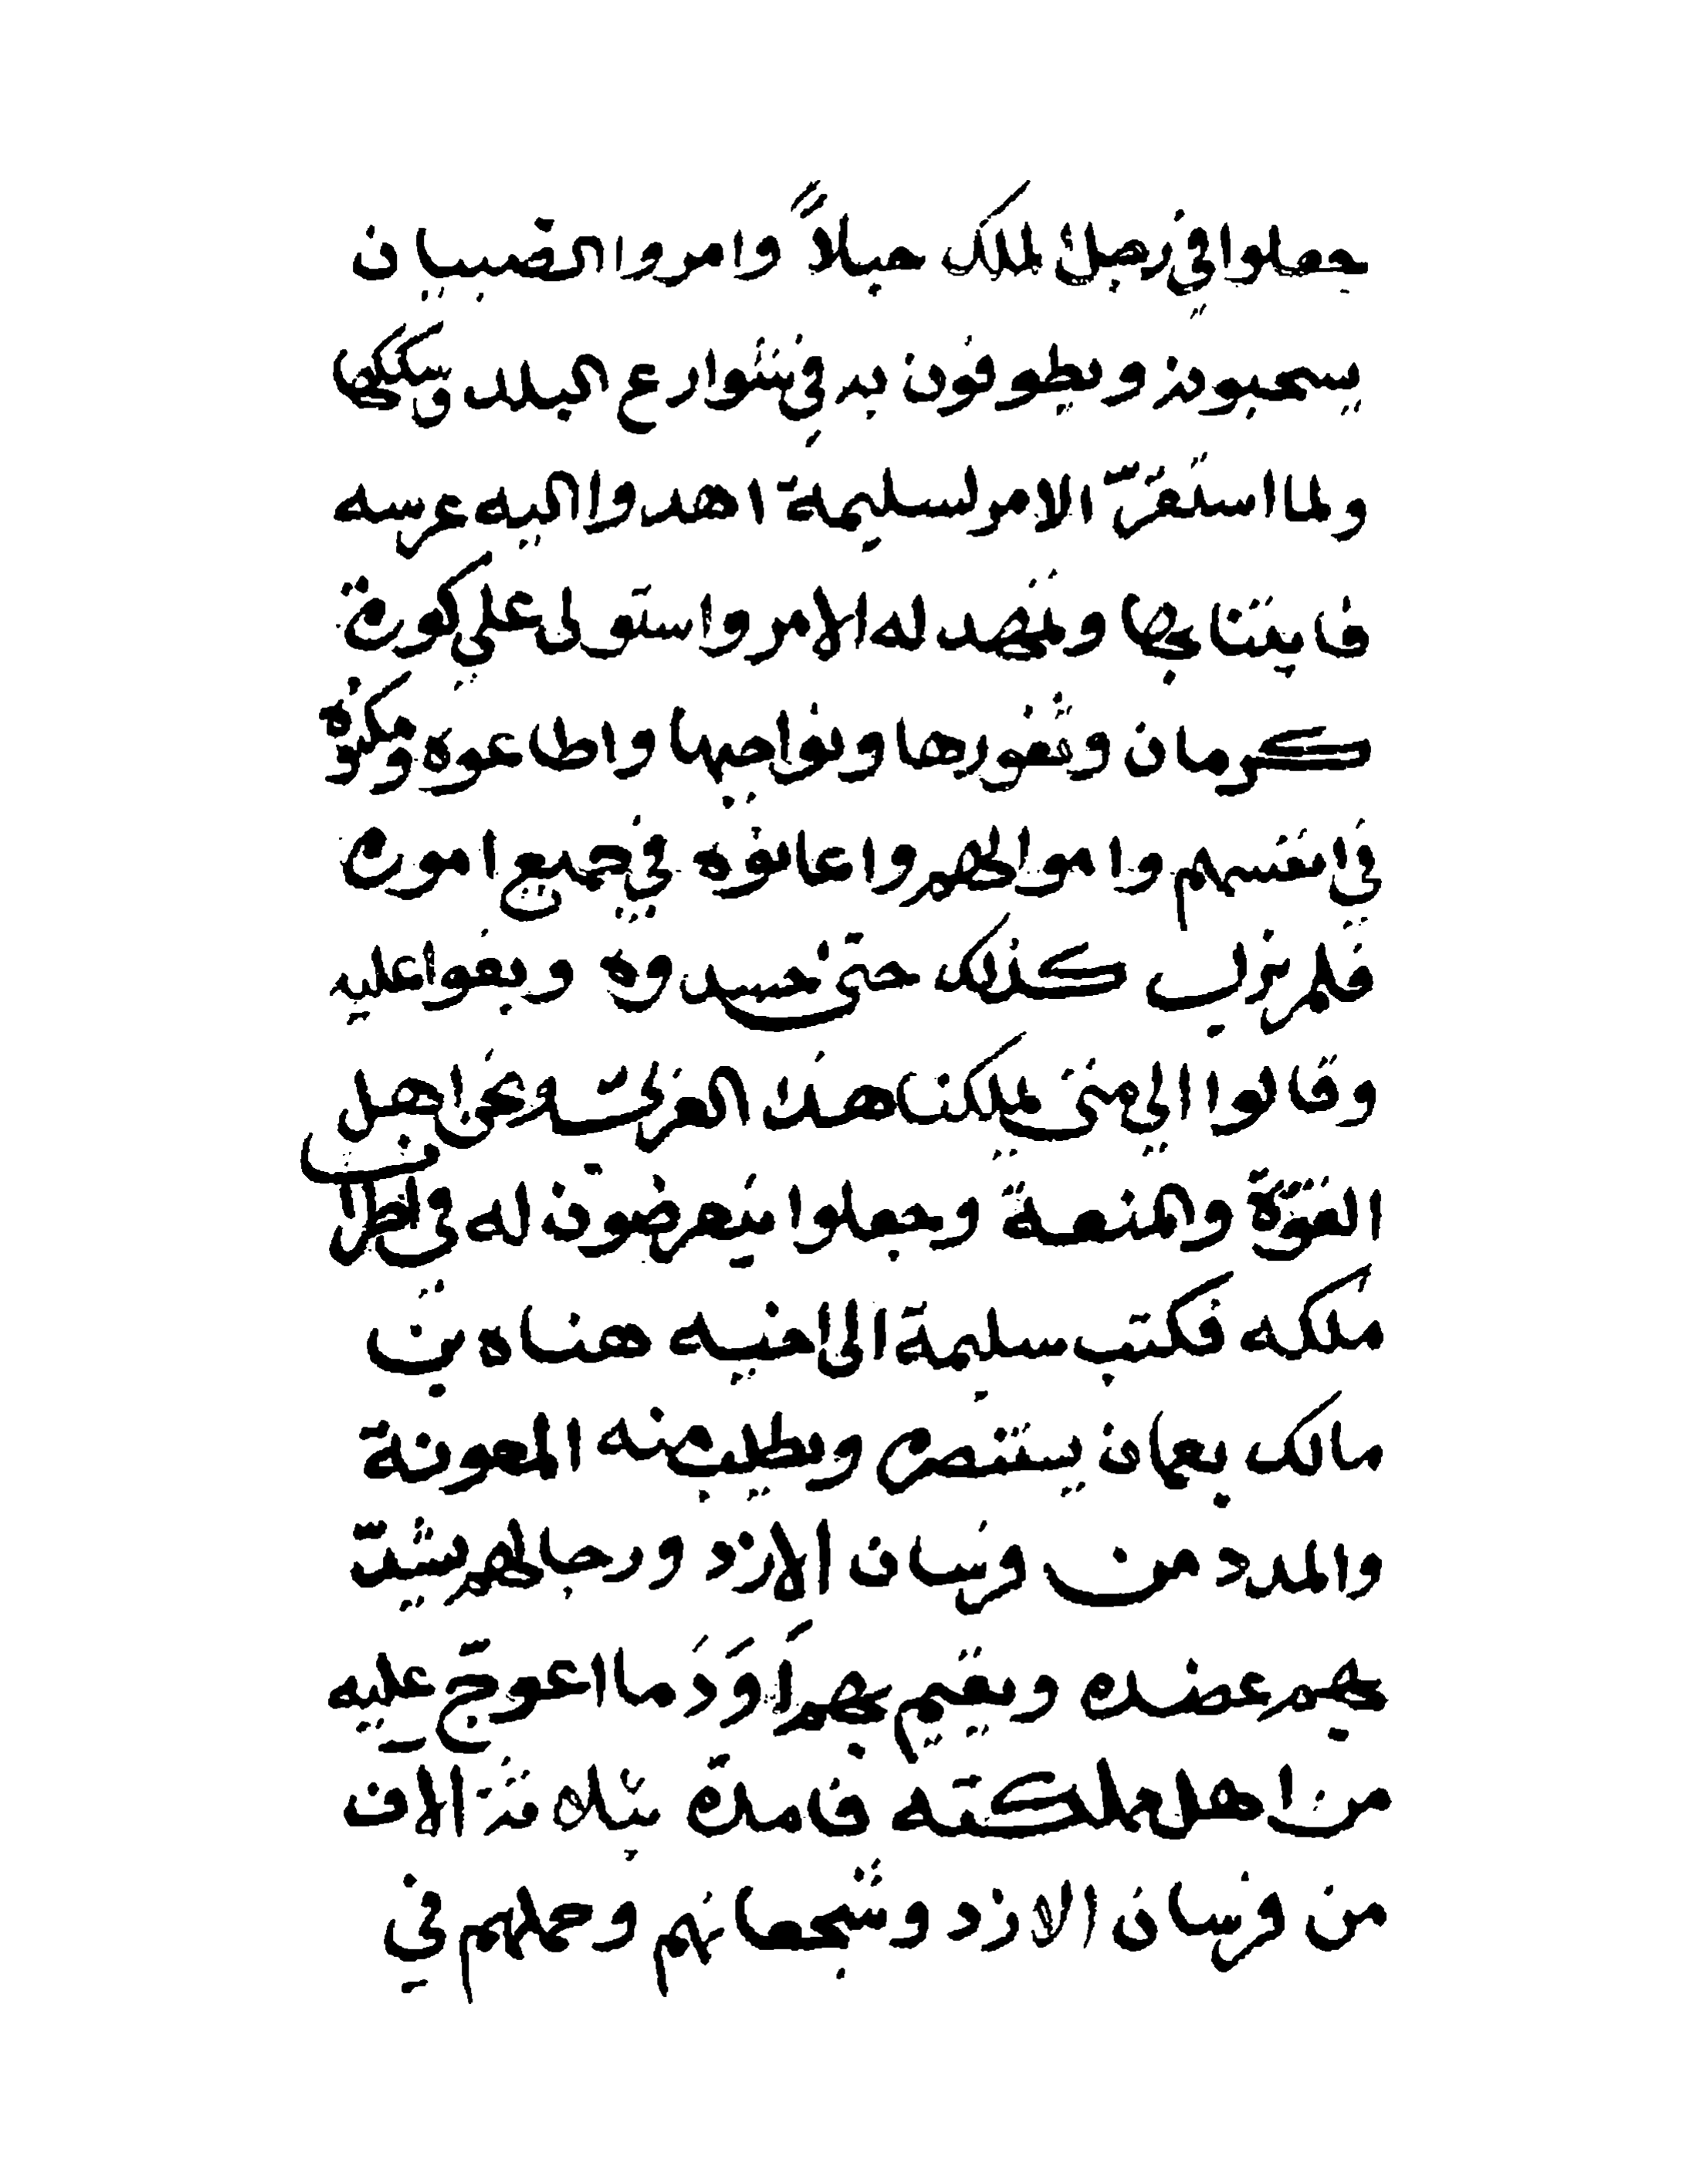 جعلوا في رجل الملك حبلاً وامروا الصبيان
يسحبونه ويطوفون به في شوارع البلد وسككها
ولما استقرّ الامر لسليمة اهدوا اليه عرسه
فابتنا بها وتمهد له الامر واستولى على كورة
كرمان وثغورها ونواحيها واطاعوه ومكنوه
في انفسهم واموالهم واعانوه في جميع اموره
فلم يزل كذلك حتى حسدوه وبغوا عليه
وقالوا الى متى يملكنا هذا العربي ونحن اهل
القوّة والمنعة وجعلوا يتعرضون له في اطراف
ملكه فكتب سليمة الى اخيه هناه بن
مالك بعمان يستنصره ويطلب منه المعونة
والمدد من فرسان الازد ورجالهم يشدّ
بهم عضده ويقيم بهم اَوَدَ ما اعوجّ عليه
من اهل مملكته فامده بثلاثة الاف
من فرسان الازد وشجعانهم وحملهم في